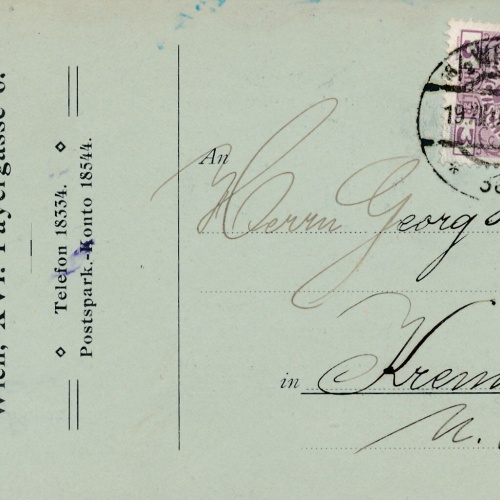 Wien, XVI. Payergasse 6.
Telefon 18334.
Postspark.-Konto 18544.
An
Herrn Georg
in Krem
N.
19